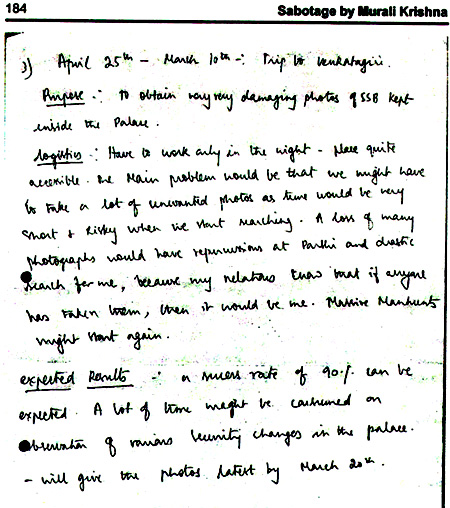 184
Sabotage by Murali Krishna
3) April 25th - March 10th -: Trip to Venkatagiri.
Purpose -: To obtain very very damaging photos of SSB kept
inside the Palace.
Logistics -: Have to work only in the night - place quite
accessible. The Main problem would be that we might have
to take a lot of unwanted photos as time would be very
short & Risky when we start searching. A loss of many
photographs would have repurcussions at Parthi and drastic
search for me, because my relations know that if anyone
has taken them, then it would be me. Massive Manhunts
might start again.
expected Results -: a sucess rate of 90% can be
expected. A lot of time might be consumed on
observation of various security changes in the palace.
- will give the photos latest by March 20th.